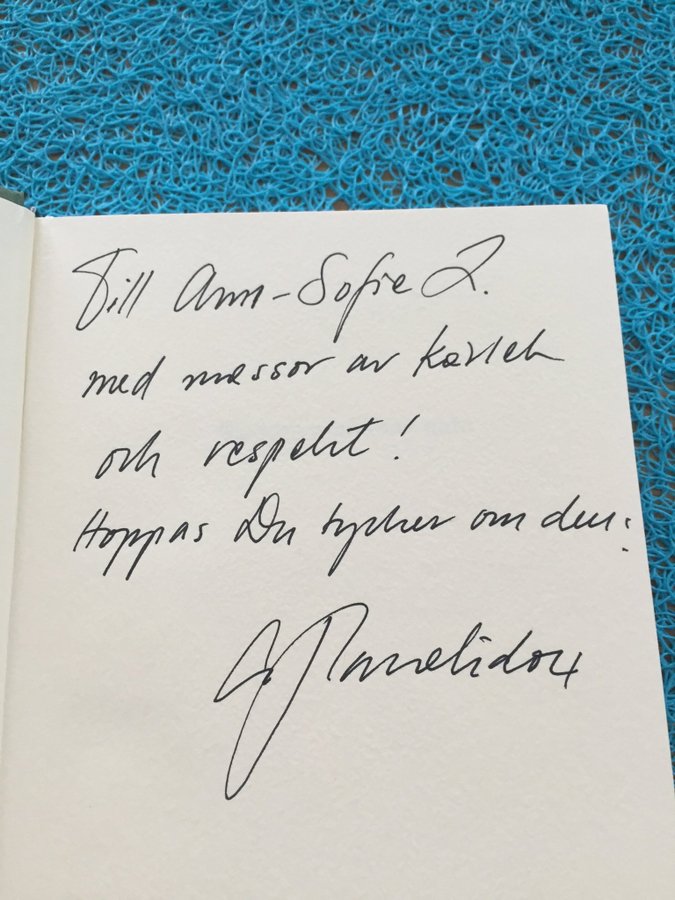 Till Ann-Sofie L.
med massor av kärlek
och respekt!
Hoppas Du tycker om den: